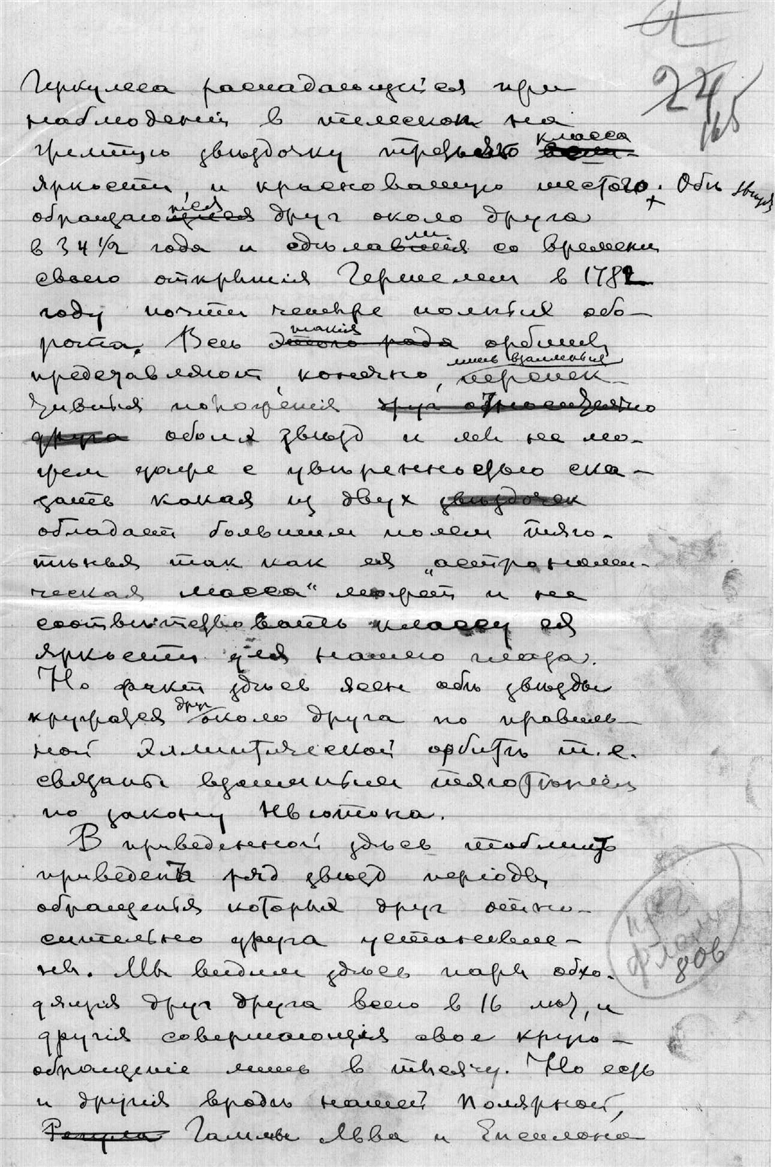 24
165
Геркулеса распадающійся при
наблюденіи в телескоп на
желтую звѣздочку третьяго класса
яркости, и красноватую шестого. Обѣ звѣзды
обращаются друг около друга
в 34 1/2 года и сдѣлали со времени
своего открытія Гершелем в 1782
году почти четыре полных обо-
рота. Всѣ такія орбиты
представляют, конечно, лишь взаимныя
положенія
обоих звѣзд и мы не мо-
жем даже с увѣренностью ска-
зать какая из двух звѣздочек
обладает большим полем тяго-
тѣнья так как ея „астрономи-
ческая масса" может и не
соотвѣтствовать классу ея
яркости для нашего глаза.
Но факт здѣсь ясен обѣ звѣзды
кружатся друг около друга по правиль-
ной эллиптической орбитѣ т.е.
связаны взаимным тяготѣніем
по закону Ньютона.
В приведенной здѣсь таблицѣ
приведен ряд звѣзд періоды
обращенья которых друг относ-
сительно друга установле-
ны. Мы видим здѣсь пары обхо-
дящія друг друга всего в 16 лѣт, и
другія совершающія свое круго-
обращеніе лишь в тысячу. Но есть
и другія вродѣ нашей Полярной,
Регула Гаммы Льва и Епсилона
806